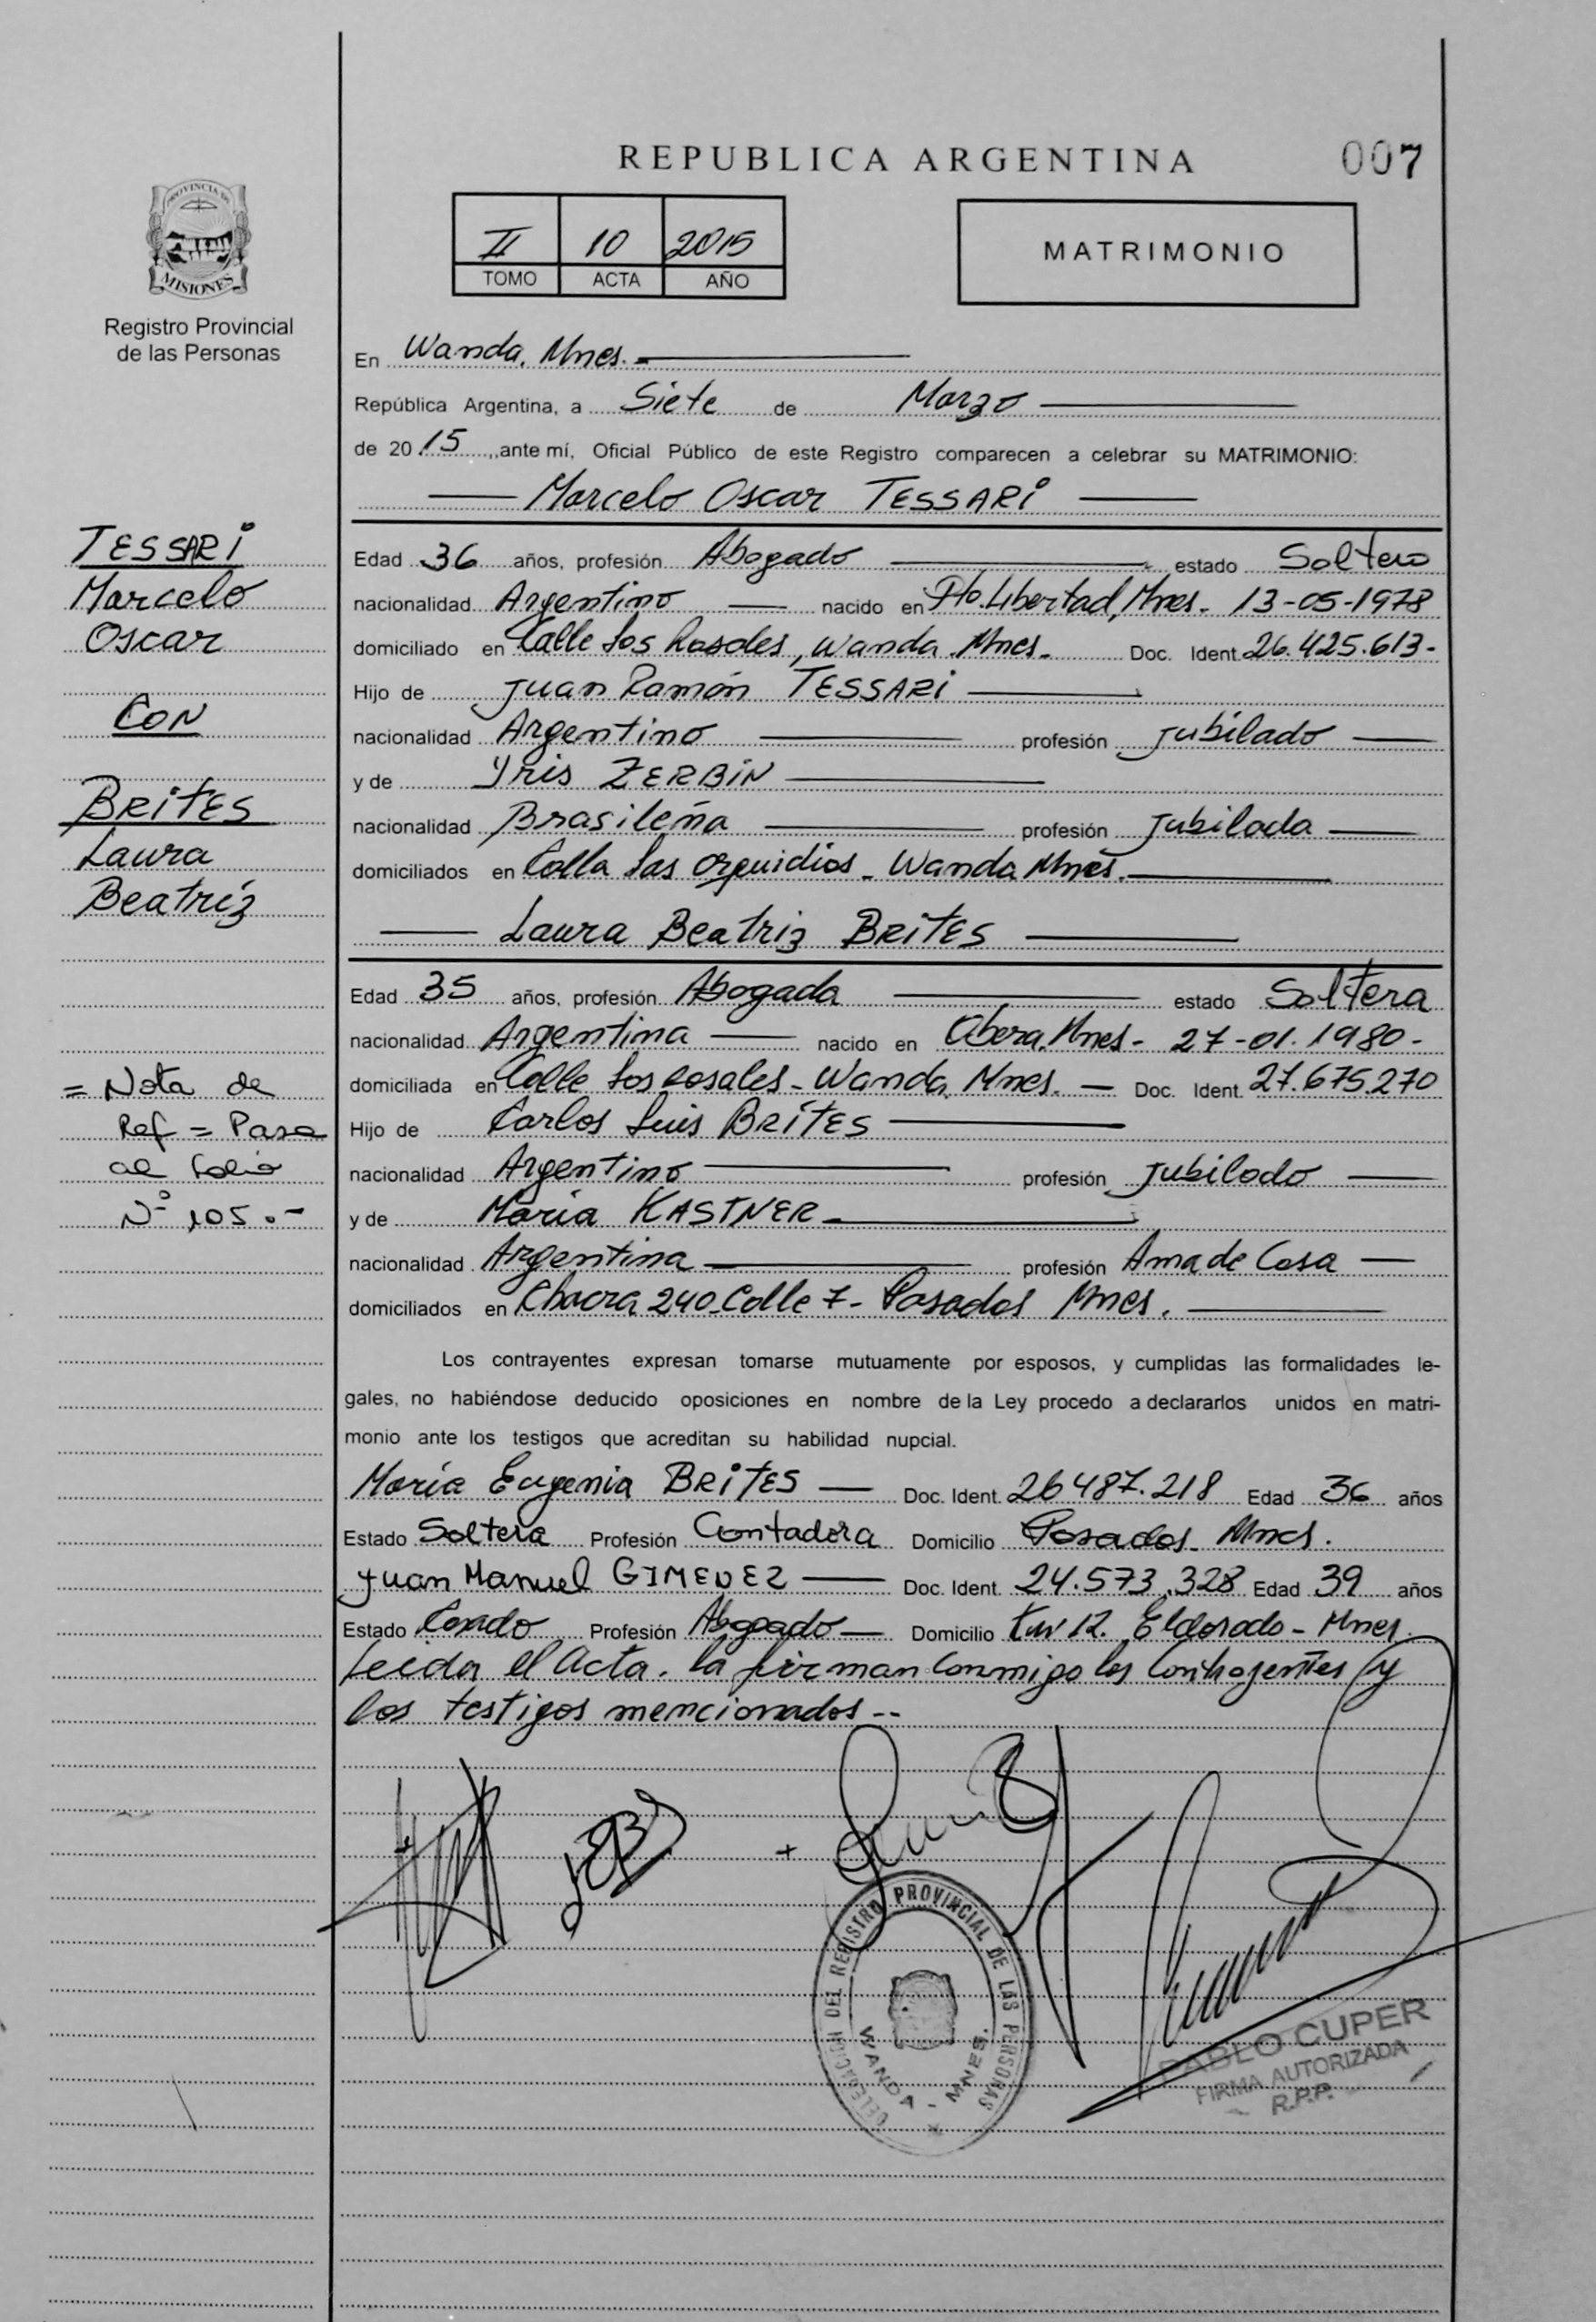 REPUBLICA ARGENTINA
007
PROVINCIA DE
MISIONES
Registro Provincial
de las Personas
II 10 2015
TOMO ACTA AÑO
MATRIMONIO
En Wanda, Mnes.
República Argentina, a Siete de Marzo
de 2015, ante mí, Oficial Público de este Registro comparecen a celebrar su MATRIMONIO:
Marcelo Oscar TESSARI
Edad 36 años, profesión Abogado estado Soltero
nacionalidad Argentino nacido en Pto. Libertad, Mnes. 13-05-1978
domiciliado en Calle Los Rosales, Wanda Mnes. Doc. Ident. 26.425.613-
Hijo de Juan Ramón TESSARI
nacionalidad Argentino profesión Jubilado
y de Yris ZERBIN
nacionalidad Brasileña profesión Jubilada
domiciliados en Calle Las Orquidias - Wanda Mnes.
Laura Beatriz BRITES
Edad 35 años, profesión Abogada estado Soltera
nacionalidad Argentina nacido en Obera, Mnes - 27-01-1980-
domiciliada en Calle Los Rosales - Wanda, Mnes. Doc. Ident. 27.675.270
Hijo de Carlos Luis BRITES
nacionalidad Argentino profesión Jubilado
y de María KASTNER
nacionalidad Argentina profesión Ama de Casa
domiciliados en Chacra 240 Calle 7 - Posadas Mnes.
Los contrayentes expresan tomarse mutuamente por esposos, y cumplidas las formalidades le-
gales, no habiéndose deducido oposiciones en nombre de la Ley procedo a declararlos unidos en matri-
monio ante los testigos que acreditan su habilidad nupcial.
María Eugenia BRITES Doc. Ident. 26487.218 Edad 36 años
Estado Soltera Profesión Contadora Domicilio Posadas - Mnes.
Juan Manuel GIMENEZ Doc. Ident. 24.573.328 Edad 39 años
Estado Casado Profesión Abogado Domicilio Km 12. Eldorado - Mnes.
Leida el Acta. la firman conmigo los Contrayentes y
los testigos mencionados --
TESSARI
Marcelo
Oscar
CON
BRITES
Laura
Beatriz
= Nota de
Ref = Pasa
al folio
Nº 105.-
DELEGACION DEL REGISTRO PROVINCIAL DE LAS PERSONAS
WANDA - MNES.
PABLO CUPER
FIRMA AUTORIZADA
R.P.P.